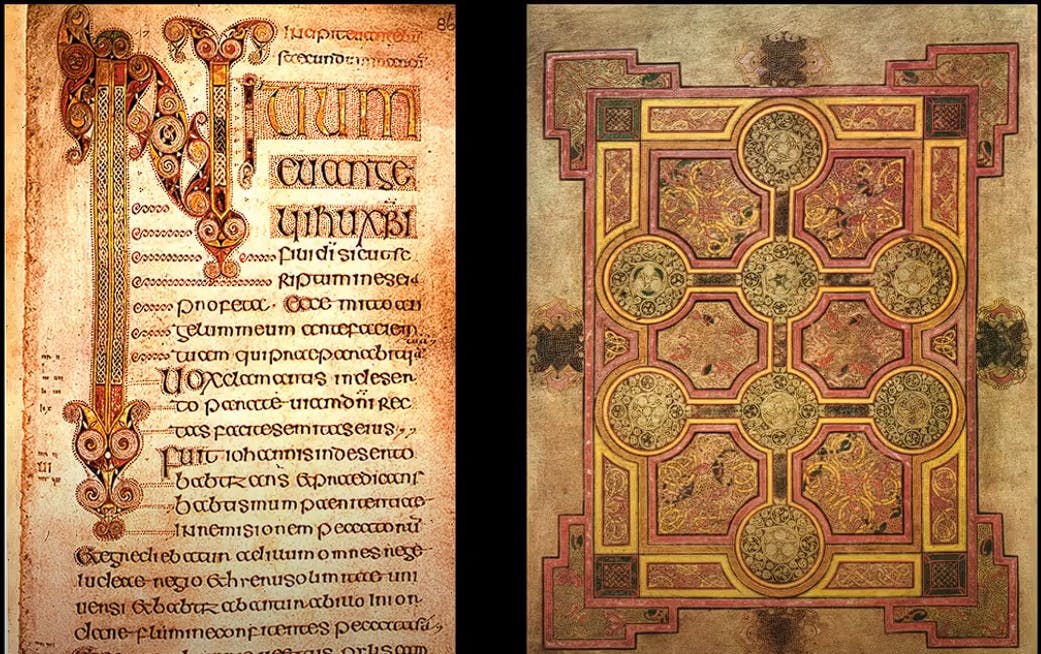 86
INITIUM
euange
lii ihu xpi
fili di sicut sc
riptum in esei
profeta. Ecce mitto an
gelum meum ante faciem
tuam qui praeparabit uia
Uox clamantis in deser
to parate uiam dni rec
tas facite semitas eius
Fuit iohannis in deserto
babtizans & praedicans
babtismum paenitentiae
In remisionem peccatorū
Et egrediebatur ad illum omnes regio
iudeae regio & hierusolimitae uni
uersi & babtizabantur ab illo in ior
dane flumine confitentes peccata sua